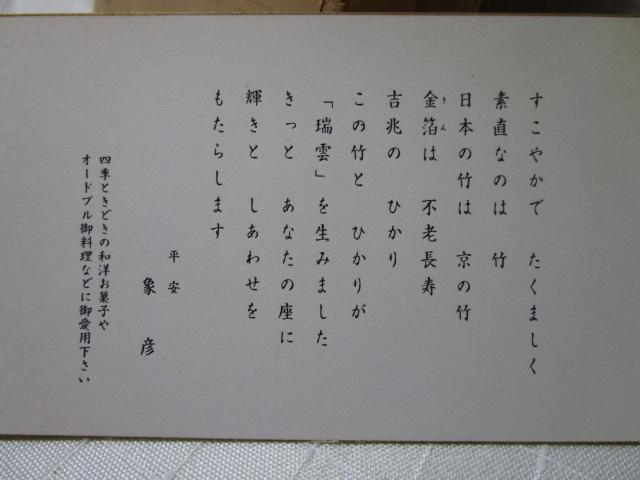 すこやかで　たくましく
素直なのは　竹
日本の竹は　京の竹
金箔は　不老長寿
きん
吉兆の　ひかり
この竹と　ひかりが
「瑞雲」を生みました
きっと　あなたの座に
輝きと　しあわせを
もたらします
平安
象彦
四季ときどきの和洋お菓子や
オードブル御料理などに御愛用下さい